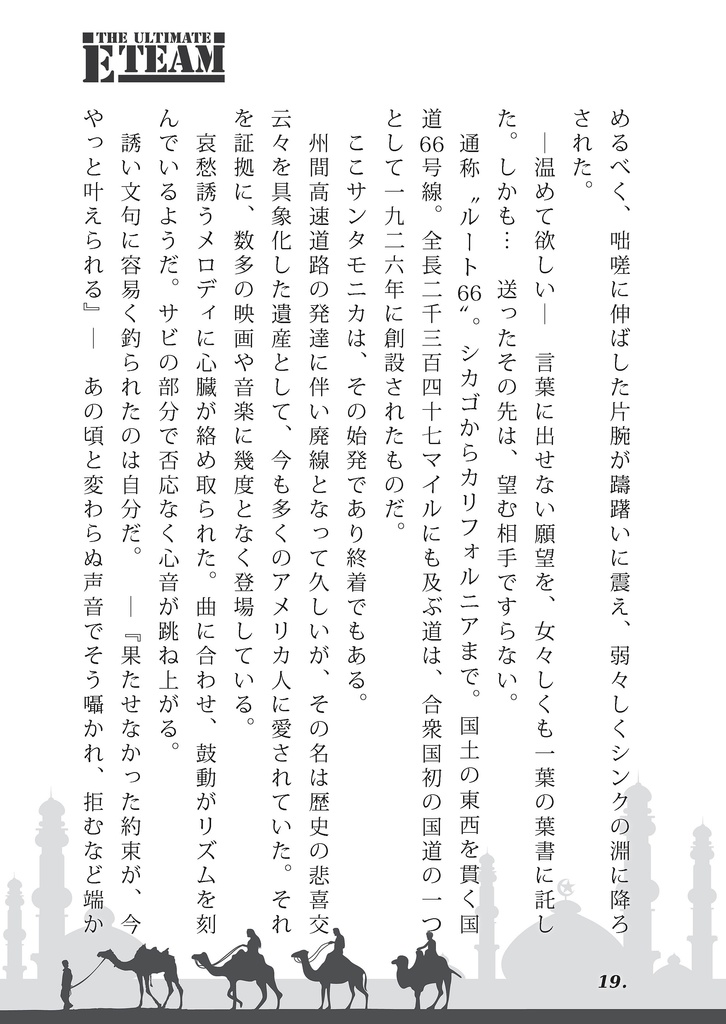 THE ULTIMATE
E TEAM
めるべく、咄嗟に伸ばした片腕が躊躇いに震え、弱々しくシンクの淵に降ろ
された。
―温めて欲しい―　言葉に出せない願望を、女々しくも一葉の葉書に託し
た。しかも…　送ったその先は、望む相手ですらない。
通称〝ルート66〟。シカゴからカリフォルニアまで。国土の東西を貫く国
道66号線。全長二千三百四十七マイルにも及ぶ道は、合衆国初の国道の一つ
として一九二六年に創設されたものだ。
ここサンタモニカは、その始発であり終着でもある。
州間高速道路の発達に伴い廃線となって久しいが、その名は歴史の悲喜交
云々を具象化した遺産として、今も多くのアメリカ人に愛されていた。それ
を証拠に、数多の映画や音楽に幾度となく登場している。
哀愁誘うメロディに心臓が絡め取られた。曲に合わせ、鼓動がリズムを刻
んでいるようだ。サビの部分で否応なく心音が跳ね上がる。
誘い文句に容易く釣られたのは自分だ。　―『果たせなかった約束が、今
やっと叶えられる』―　あの頃と変わらぬ声音でそう囁かれ、拒むなど端か
19.